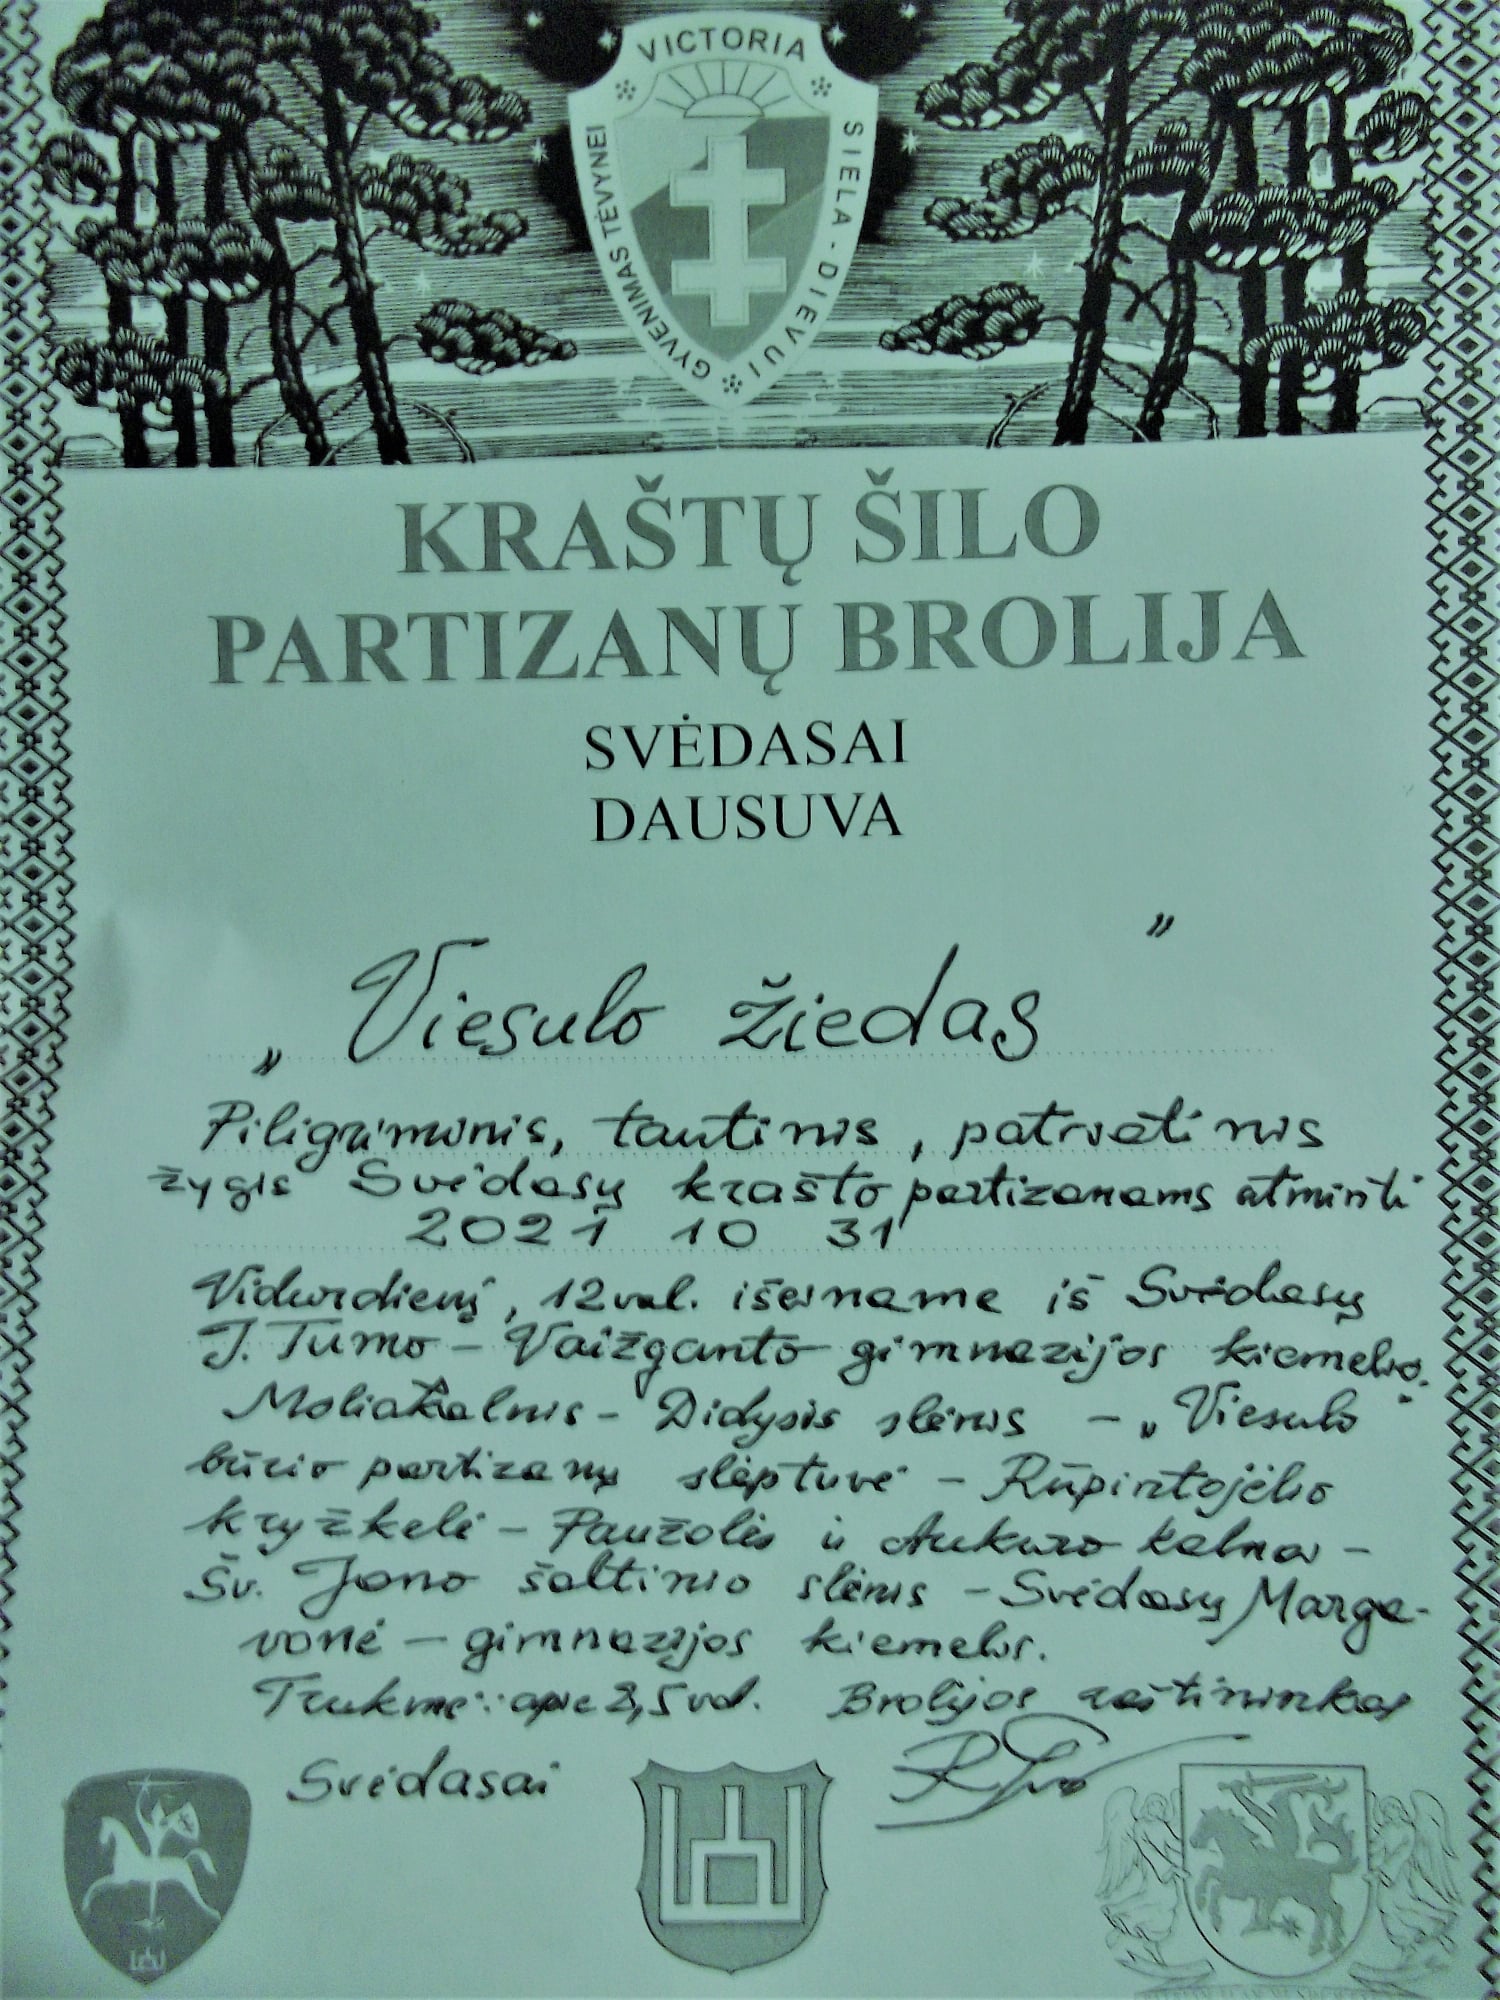 VICTORIA
GYVENIMAS TĖVYNEI
SIELA - DIEVUI
KRAŠTŲ ŠILO
PARTIZANŲ BROLIJA
SVĖDASAI
DAUSUVA
„Viesulo žiedas”
Piligriminis, tautinis, patriotinis
žygis Svėdasų krašto partizanams atminti
2021 10 31
Vidurdienį, 12 val. išeiname iš Svėdasų
J. Tumo – Vaižganto gimnazijos kiemelio.
Moliakalnis – Didysis slėnis – „Viesulo”
būrio partizanų slėptuvė – Rūpintojėlio
kryžkelė – Paužolės ir Aukuro kalnai –
Šv. Jono šaltinio slėnis – Svėdasų Marga-
vonė – gimnazijos kiemelis.
Trukmė: apie 2,5 val. Brolijos raštininkas
Svėdasai